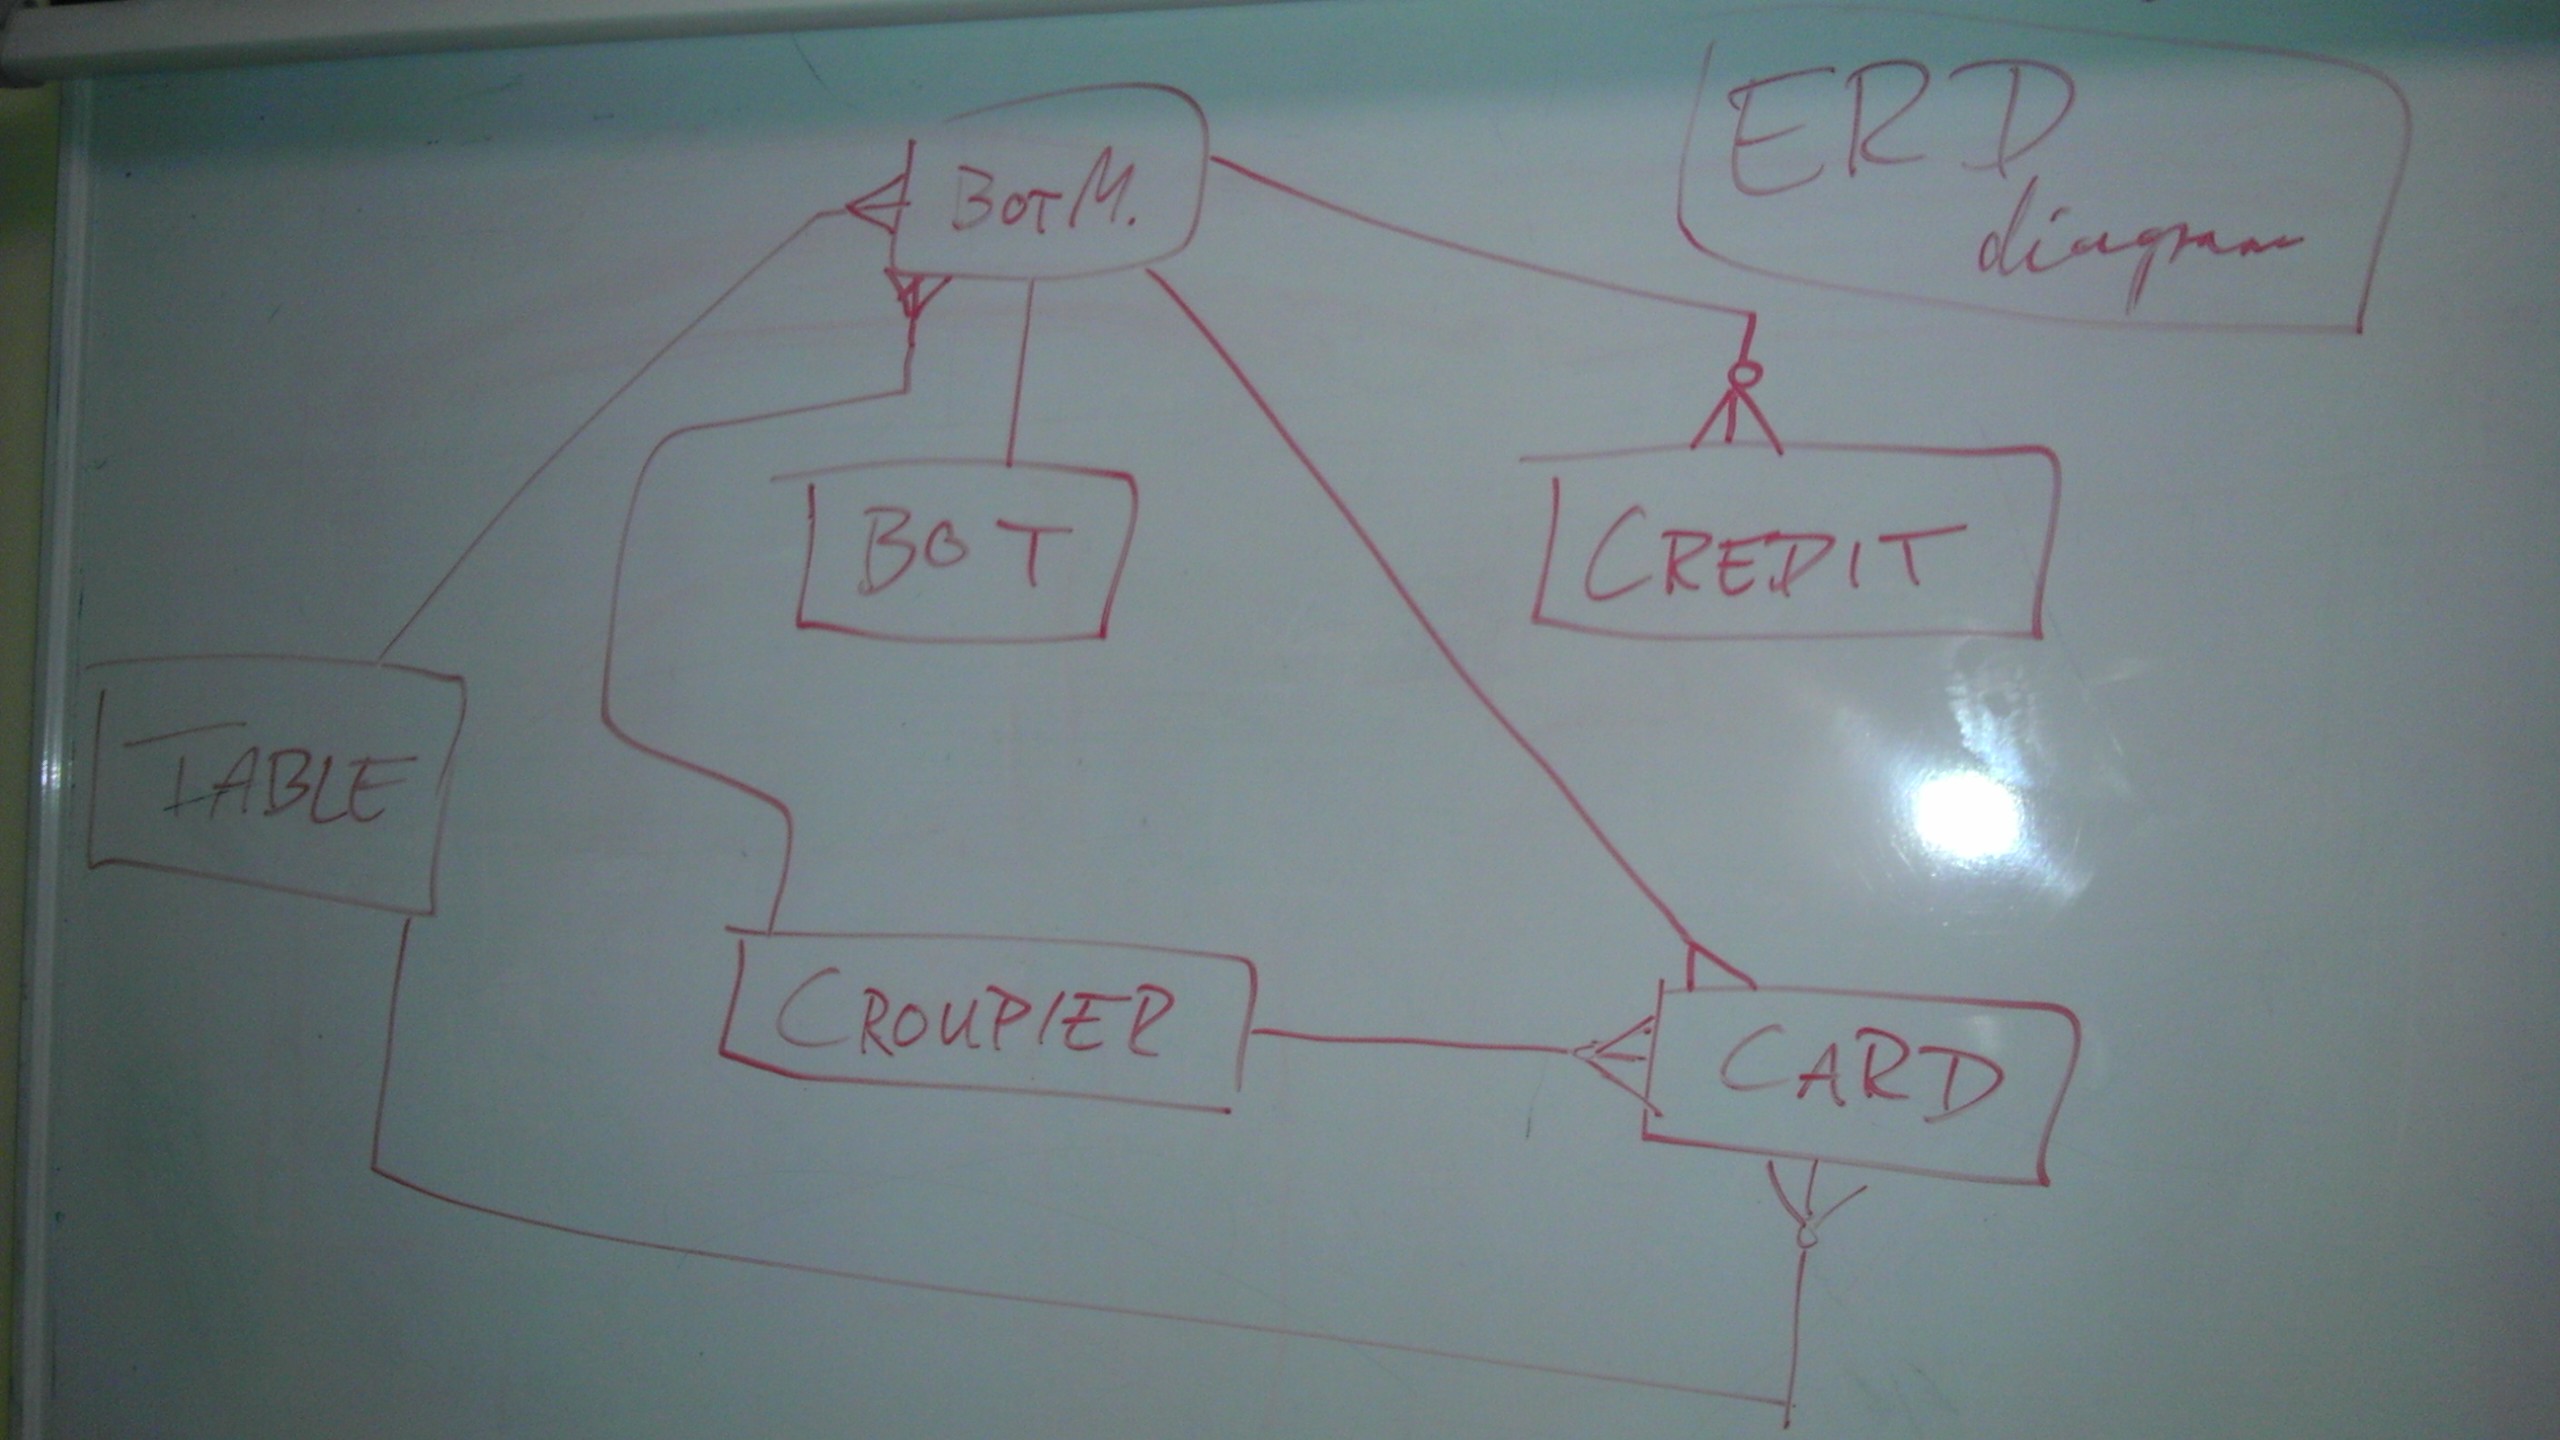 ERD
diagram
BOT M.
BOT
CREDIT
TABLE
CROUPIER
CARD